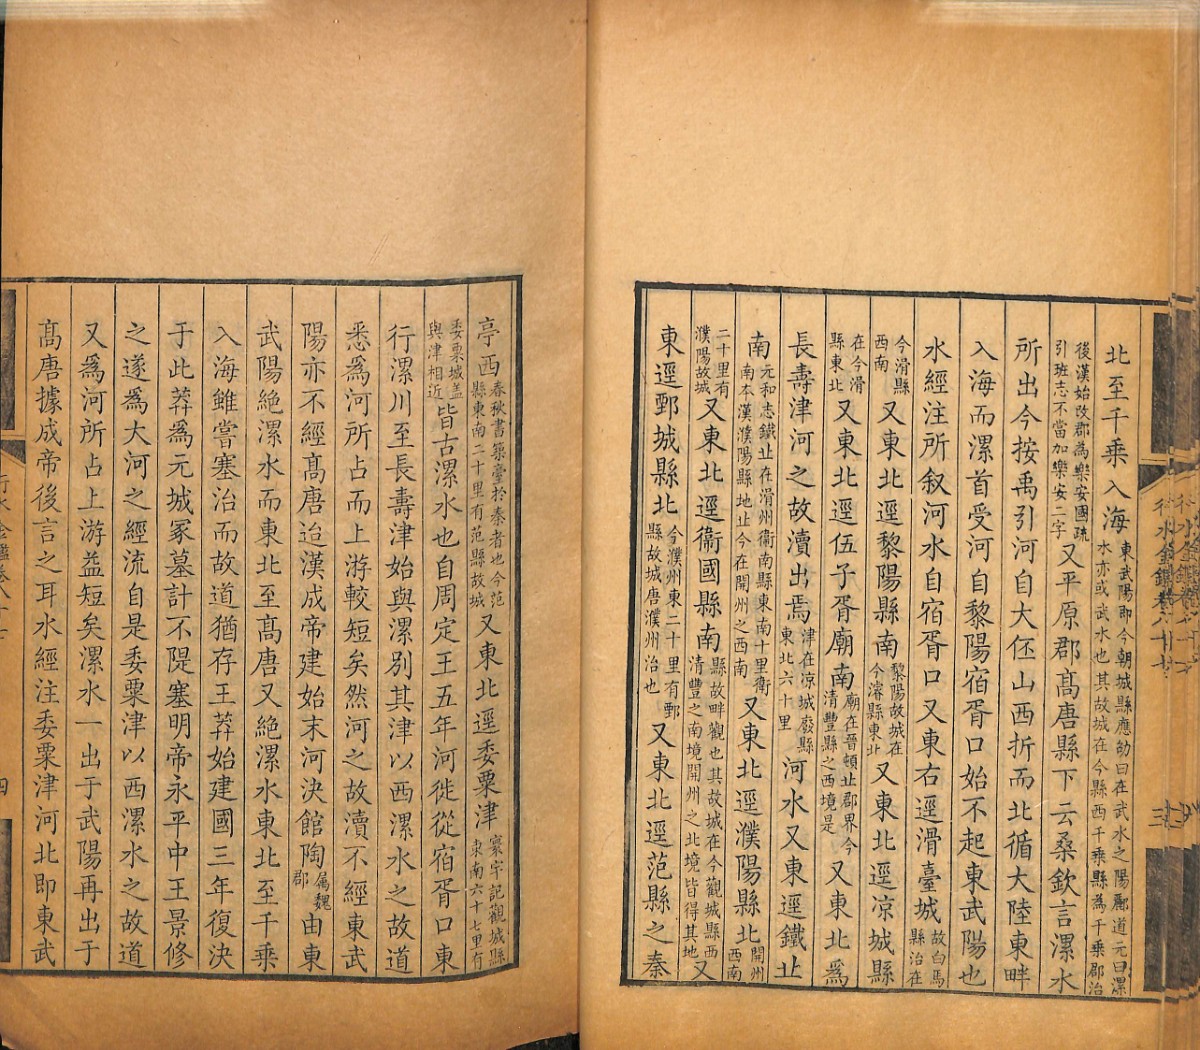 北至千乘入海東武陽即今朝城縣應劭曰在武水之陽酈道元曰漯水亦或武水也其故城在今縣西千乘縣為千乘郡治
後漢始改郡為樂安國疏引班志不當加樂安二字又平原郡髙唐縣下云桑欽言漯水
所出今按禹引河自大伾山西折而北循大陸東畔
入海而漯首受河自黎陽宿胥口始不起東武陽也
水經注所叙河水自宿胥口又東右逕滑臺城故白馬縣治在
今滑縣西南又東北逕黎陽縣南黎陽故城在今濬縣東北又東北逕凉城縣
在今滑縣東北又東北逕伍子胥廟南廟在晉頓丘郡界今清豐縣之西境是又東北爲
長壽津河之故瀆出焉津在凉城廢縣東北六十里河水又東逕鐵丘
南元和志鐵丘在滑州衞南縣東南十里衞南本漢濮陽縣地丘今在開州之西南又東北逕濮陽縣北開州西南
二十里有濮陽故城又東北逕衞國縣南縣故畔觀也其故城在今觀城縣西清豐之南境開州之北境皆得其地又
東逕鄄城縣北今濮州東二十里有鄄縣故城唐濮州治也又東北逕范縣之秦
亭西春秋書築臺於秦者也今范縣東南二十里有范縣故城又東北逕委粟津寰宇記觀城縣東南六十七里有
委粟城盖與津相近皆古漯水也自周定王五年河徙從宿胥口東
行漯川至長壽津始與漯别其津以西漯水之故道
悉爲河所占而上游較短矣然河之故瀆不經東武
陽亦不經髙唐迨漢成帝建始末河決館陶屬魏郡由東
武陽絶漯水而東北至髙唐又絶漯水東北至千乘
入海雖嘗塞治而故道猶存王莽始建國三年復決
于此莽爲元城冢墓計不隄塞明帝永平中王景修
之遂爲大河之經流自是委粟津以西漯水之故道
又爲河所占上游益短矣漯水一出于武陽再出于
髙唐據成帝後言之耳水經注委粟津河北即東武